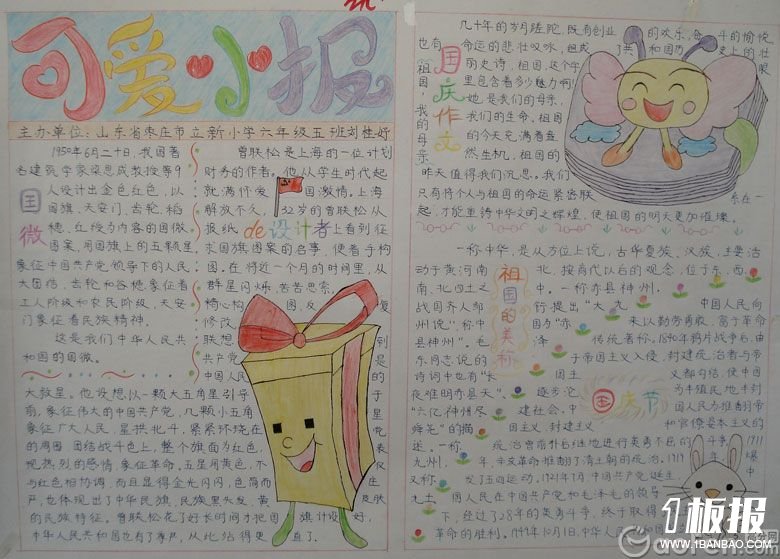 可爱小报
主办单位:山东省枣庄市立新小学六年级五班刘桂好
国徽
1950年6月二十日,我国著
名建筑学家梁思成教授等9
人设计出金色红色,以
国旗、天安门、齿轮、稻
穗、红绶为内容的国徽
图案,用国旗上的五颗星
象征中国共产党领导下的人民
大团结,齿轮和谷穗象征着
工人阶级和农民阶级,天安
门象征着民族精神。
这是我们中华人民共
和国的国徽。
de设计者
曾联松是上海的一位计划
财务的作者。他从学生时代起
就满怀爱国激情。上海
解放不久,32岁的曾联松从
报纸上看到征
求国旗图案的启事,便着手构
图。在将近一个月的时间里,从
群星闪烁,苦苦思索,
精心构图,反复
修改
联想到
共产党是
中国人民的
大救星。他设想以一颗大五角星引导
象征伟大的中国共产党,几颗小五角
象征广大人民,星拱北斗,紧紧环绕在
的周围,团结战斗,整个旗面为红色,
现热烈的感情,象征革命。五星用黄色,不
与红色相协调,而且显得金光闪闪,色简而
严,也体现出了中华民族,民族黑头发,黄皮肤
的民族特征。曾联松花了好长时间才把国旗计设好,
中华人民共和国也有了尊严,从此站得更直了。
国庆作文
几十年的岁月蹉跎,既有创业的欢乐,奋斗的愉悦
也有命运的悲壮叹咏,组成了共和国历史上的壮
丽史诗,祖国,这个字眼
里包含着多少魅力啊!
祖国,她是我们的母亲,
我们的生命,祖国
我的母亲
的今天充满着盎
然生机,祖国的
昨天值得我们沉思。我们
只有将个人与祖国的命运紧密联系在一
起,才能重铸中华文明之辉煌,使祖国的明天更加璀璨。
祖国的美称
一称中华,是从方位上说,古华夏族、汉族,主要活
动于黄河南北,按商代以后的观念,位于东、西、
南、北四土之中。一称赤县神州,
战国齐人邹衍提出"大九
州说",称中国为"赤
县神州"。毛泽
东同志说的
诗词中也有"长
夜难明赤县天"、
"六亿神州尽
舜尧"的描
述。一称
九州,
又称
九土。
国庆节
中国人民向
来以勤劳勇敢,富于革命
传统著称。1840年鸦片战争后,由
于帝国主义入侵,封建统治者与帝
国主义都勾结,使中国
逐步沦为半殖民地半封
建社会,中国人民为推翻帝
国主义,封建主义和官僚资本主义的
统治曾前仆后继地进行英勇不屈的斗争,1911
年,辛亥革命推翻了清王朝的统治,1919爆
发了五四运动,1921年7月,中国共产党诞生,中
国人民在中国共产党和毛泽东的领导
下,经过了28年的英勇斗争,终于取得
革命的胜利。1949年10月1日,中华人民共和国
1板报
WWW.1BANBAO.COM